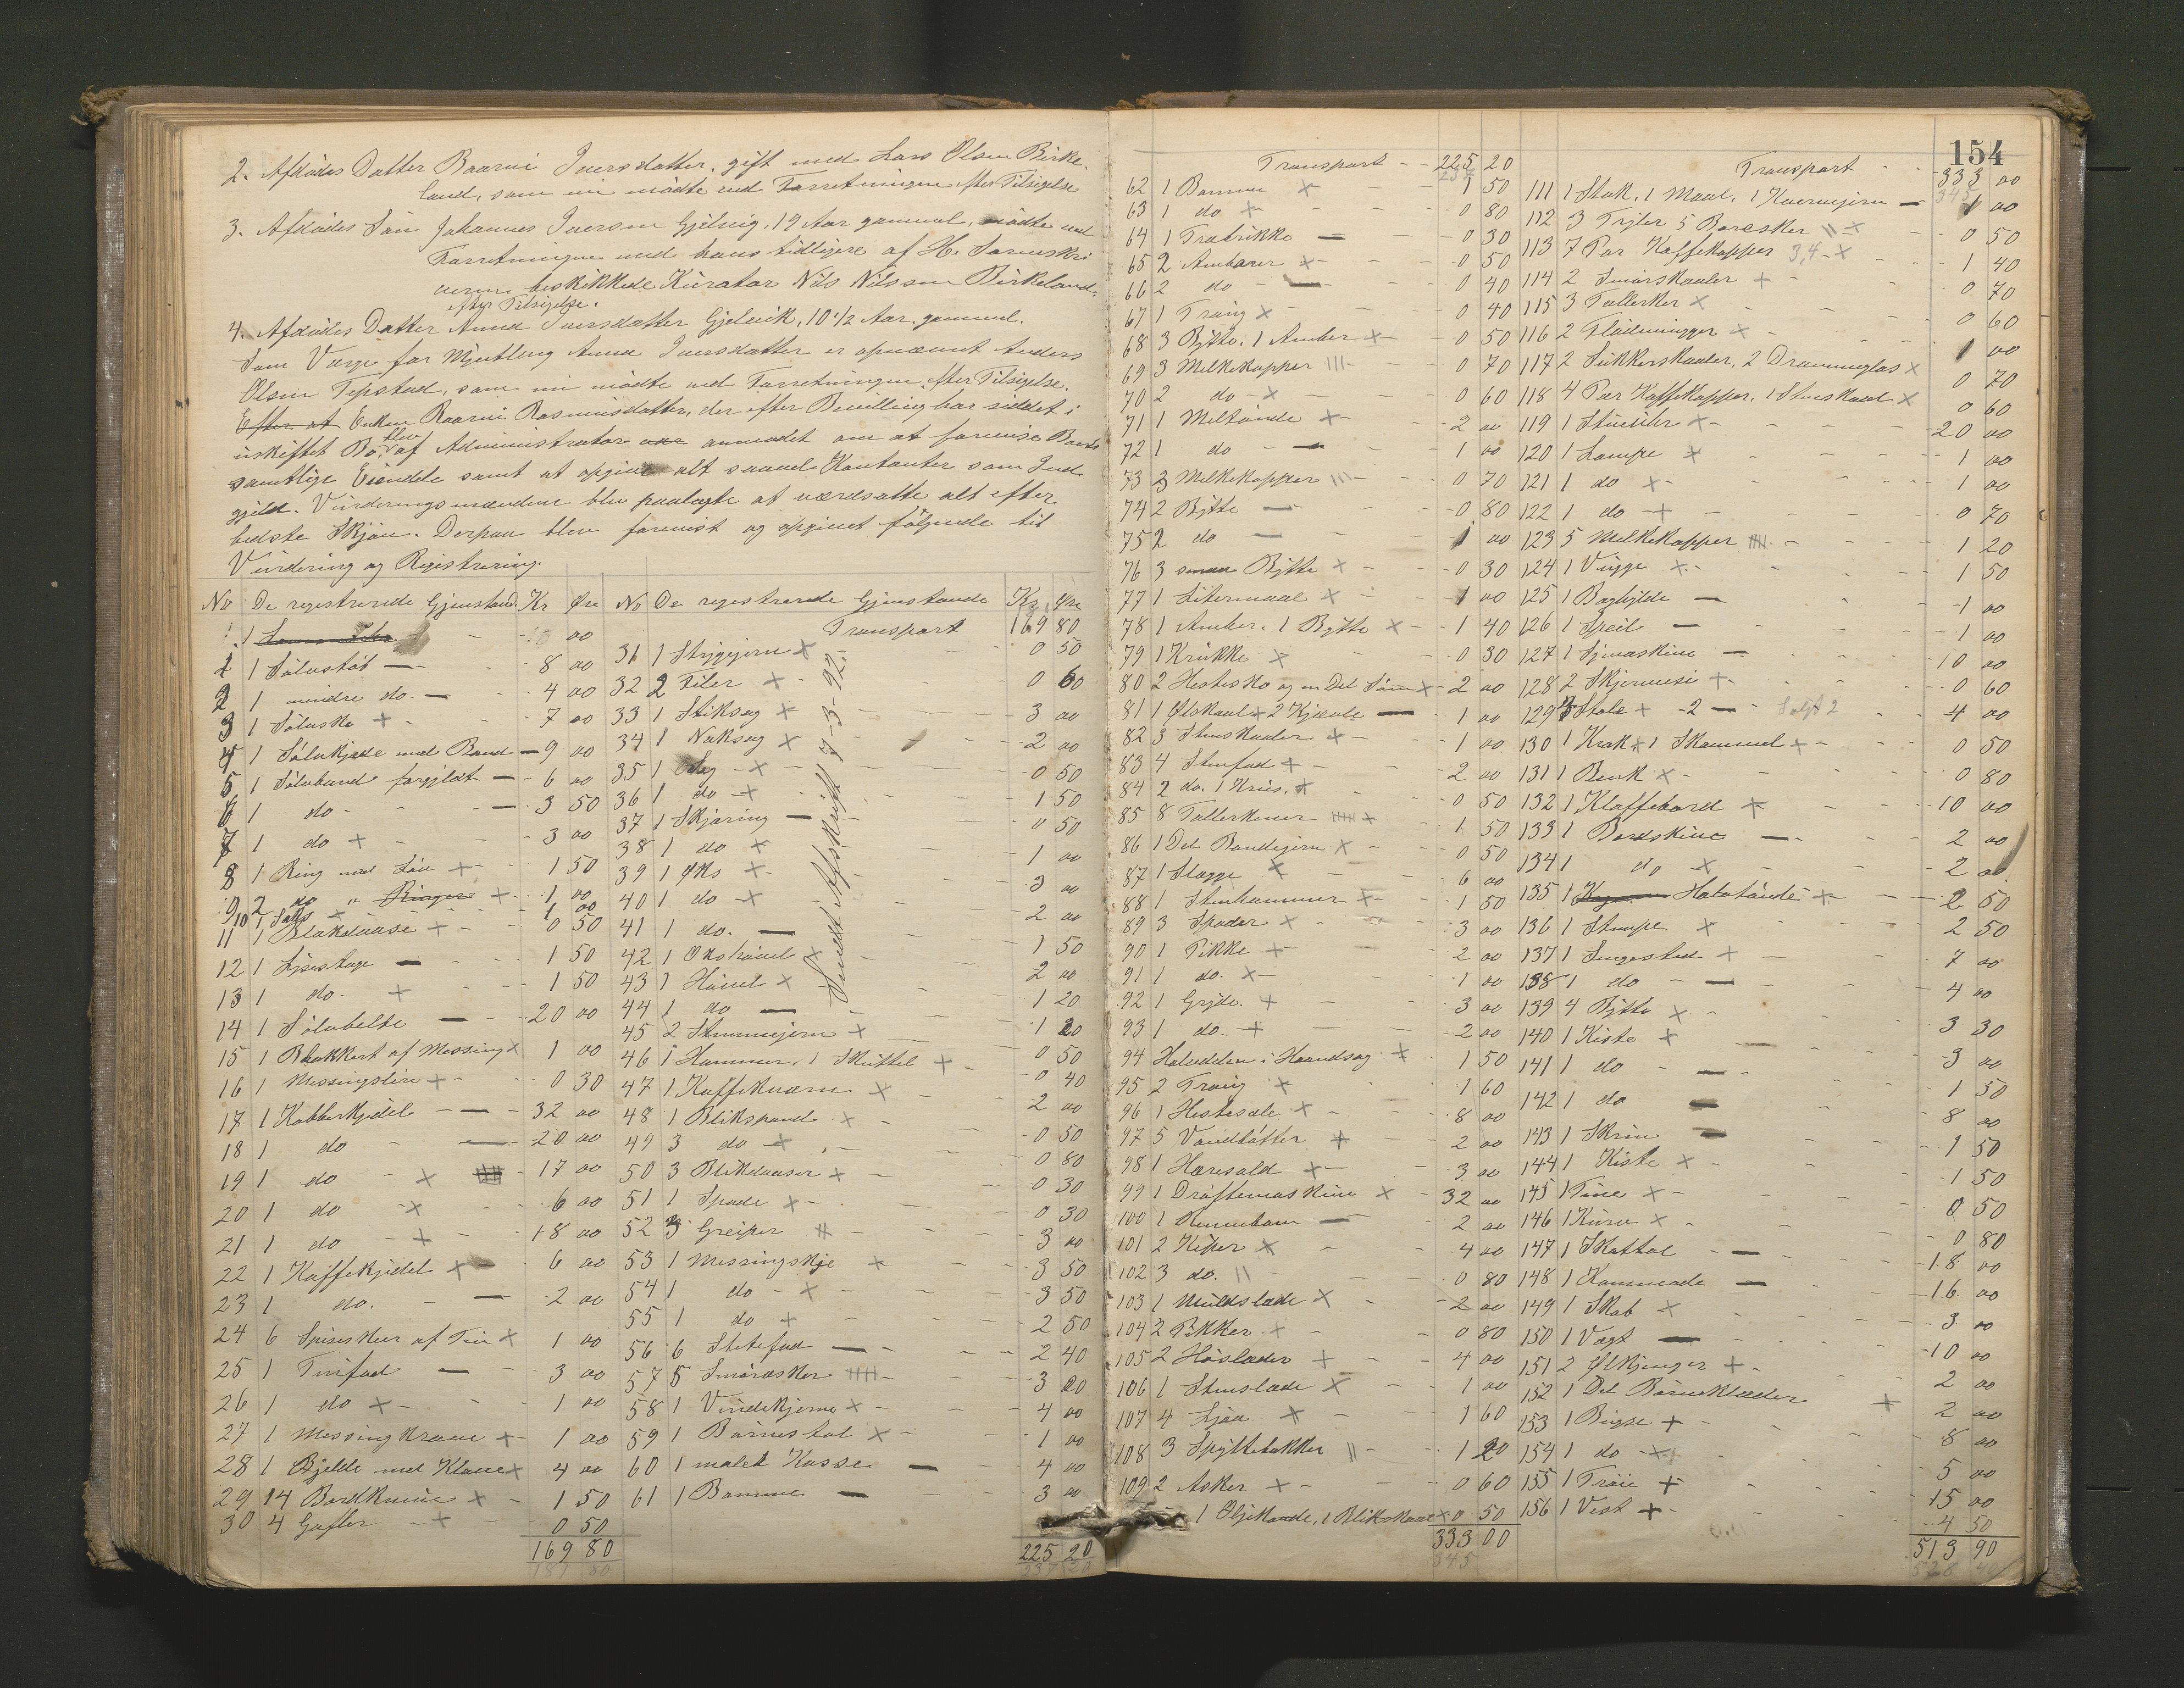 2. Afdødes Datter Baarni Iversdatter, gift med Lars Olsen Birke
land, som nu mødte ved Forretningen efter Tilsigelse
3. Afdødes Søn Johannes Iversen Gjelvig, 19 Aar gammel, mødte ved
Forretningen med hans tidligere af H. Sorenskri
veren beskikkede Kurator Nils Nilssen Birkeland,
efter Tilsigelse.
4. Afdødes Datter Anna Iversdatter Gjelvik, 10 1/2 Aar gammel.
Som Værge for Myndtling Anna Iversdatter er opnævnt Anders
Olsen Tepstad, som nu mødte ved Forretningen efter Tilsigelse.
Efter at Enken Baarni Rasmusdatter, der efter Bevilling har siddet i
uskiftet Bo, blev af Administrator var anmodet om at forevise Boets
samtlige Eiendele samt at opgive alt saavel Kontanter som Ind
gjeld. Vurderingsmændene blev paalagte at værdsatte alt efter
bedste Skjøn. Derpaa blev forevist og opgivet følgende til
Vurdering og Registrering.
No De registrerede Gjenstande Kr Øre
1 Sølvstøb — 8 00
2 1 mindre do. — 4 00
3 1 Sølvske + 7 00
4 1 Sølvkjæde med Baand — 9 00
5 1 Sølvbaand forgyldt — 6 00
6 1 do — 3 50
7 1 do + 3 00
8 1 Ring med Løv + 1 50
9 2 do " Ringer + 1 00
10 1 Saks + 1 00
11 1 Blækdaase + 0 50
12 1 Lysestage — 1 50
13 1 do + 1 50
14 1 Sølvbelte — 20 00
15 1 Blakkert af Messing x 1 00
16 1 Messingslire + 0 30
17 1 Kobberkjedel — 32 00
18 1 do — 20 00
19 1 do + 17 00
20 1 do x 6 00
21 1 do + 18 00
22 1 Kaffekjedel x 6 00
23 1 do. — 2 00
24 6 Spiseskeer af Tin x 1 00
25 1 Tinfad — 3 00
26 1 do + 1 00
27 1 Messingkrane + 1 00
28 1 Bjelde med Klave x 4 00
29 14 Bordknive x 1 50
30 4 Gafler + 0 50
169 80
No De registrerede Gjenstande Kr. Øre
Transport 169 80
31 1 Strygejern x 0 50
32 2 Filer + 0 60
33 1 Stiksag + 3 00
34 1 Naksag x 2 00
35 1 Sag x 0 50
36 1 do + 1 50
37 1 Skjæring — 0 50
38 1 do + 1 00
39 1 Øks + 3 00
40 1 do x 2 00
41 1 do. — 1 50
42 1 Økshøvel x 2 00
43 1 Høvel x 1 20
44 1 do — 1 20
45 2 Stemmejern x 0 50
46 1 Hammer, 1 Skuttel + 0 40
47 1 Kaffekværn x 2 00
48 1 Blikspand x 0 50
49 3 do + 0 80
50 3 Blikdaaser + 0 30
51 1 Spade x 0 30
52 3 Greiper 3 00
53 1 Messingskje x 3 50
54 1 do x 3 50
55 1 do + 2 50
56 6 Stetefad — 2 40
57 5 Smøræsker 3 00
58 1 Vindekjerne x 4 00
59 1 Barnestol x 1 00
60 1 malet Kasse — 4 00
61 1 Bomme — 3 00
225 20
Sendt Afskrift 7-3-92.
154
Transport 225 20
62 1 Bomme x 1 50
63 1 do + 0 80
64 1 Træbrikke — 0 30
65 2 Ambarer x 0 50
66 2 do — 0 40
67 1 Traug x 0 40
68 3 Bytte, 1 Amber x 0 50
69 3 Melkekopper III 0 70
70 2 do x 0 60
71 1 Meltønde + 2 00
72 1 do — 1 00
73 3 Melkekopper III 0 70
74 2 Bytte — 0 80
75 2 do — 1 00
76 3 smaa Bytte x 0 30
77 1 Litermaal x 1 00
78 1 Amber. 1 Bytte x 1 40
79 1 Krukke x 0 30
80 2 Hestesko og en Del Søm x 2 00
81 1 Ølskaal + 2 Kjende — 1 00
82 3 Stenskaaler + 1 00
83 4 Stenfad + 2 00
84 2 do. 1 Krus. x 0 50
85 8 Tallerkener x 1 50
86 1 Del Bandejern x 0 50
87 1 Slægge x 6 00
88 1 Stenhammer x 1 50
89 3 Spader x 3 00
90 1 Pikke + 2 00
91 1 do. x 1 00
92 1 Gryde. + 3 00
93 1 do. + 2 00
94 Halvdelen i Haandsag + 1 50
95 2 Traug x 1 60
96 1 Hestesele x 8 00
97 5 Vandbøtter + 2 00
98 1 Hæresold + 3 00
99 1 Drøftemaskine x 32 00
100 1 Rennebom — 2 00
101 2 Kiper x 4 00
102 3 do. II 0 80
103 1 Muldslæde x 2 00
104 2 Pikker x 0 80
105 2 Høslæder + 4 00
106 1 Stenslæde x 1 00
107 4 Ljaa x 1 60
108 3 Spyttebakker II 1 20
109 2 Asker + 0 60
1 Oljekande, 1 Blikskaal x 0 50
333 00
345
Transport 333 00
345
111 1 Stak, 1 Maal, 1 Kvernejern — 1 00
112 3 Trjler 5 Boræsker II x 0 50
113 7 Par Kaffekopper 3,4 x 1 40
114 2 Smørskaaler + 0 70
115 3 Tallerker x 0 60
116 2 Flødemugger x 1 00
117 2 Sukkerskaaler, 2 Dramglas x 0 70
118 4 Par Kaffekopper, 1 Stenskaal x 0 60
119 1 Stueuhr x 20 00
120 1 Lampe x 1 00
121 1 do x 1 00
122 1 do + 0 70
123 5 Melkekopper 1 20
124 1 Vugge x 1 50
125 1 Boghylde — 1 00
126 1 Speil — 1 00
127 1 Symaskine — 10 00
128 2 Skjermeisi + 0 60
129 Stole x 2 — Solgt 2 4 00
130 1 Krak x 1 Skammel + 0 50
131 1 Benk x 0 80
132 1 Klaffebord x 10 00
133 1 Bordskive — 2 00
134 1 do x 2 00
135 1 Halvtønde + 2 50
136 1 Stampe x 2 50
137 1 Sengested + 7 00
138 1 do — 4 00
139 4 Bytte x 3 30
140 1 Kiste + 3 00
141 1 do — 1 50
142 1 do — 8 00
143 1 Skrin — 1 50
144 1 Kiste x 1 50
145 1 Tine x 0 50
146 1 Kurv x 0 80
147 1 Skattol — 18 00
148 1 Kommode — 16 00
149 1 Skab x 3 00
150 1 Vægt — 10 00
151 2 Ølkjenger + 2 00
152 1 Del Barneklæder x 2 00
153 1 Buxe + 8 00
154 1 do x 5 00
155 1 Trøie + 15 00
156 1 Vest + 4 50
513 90